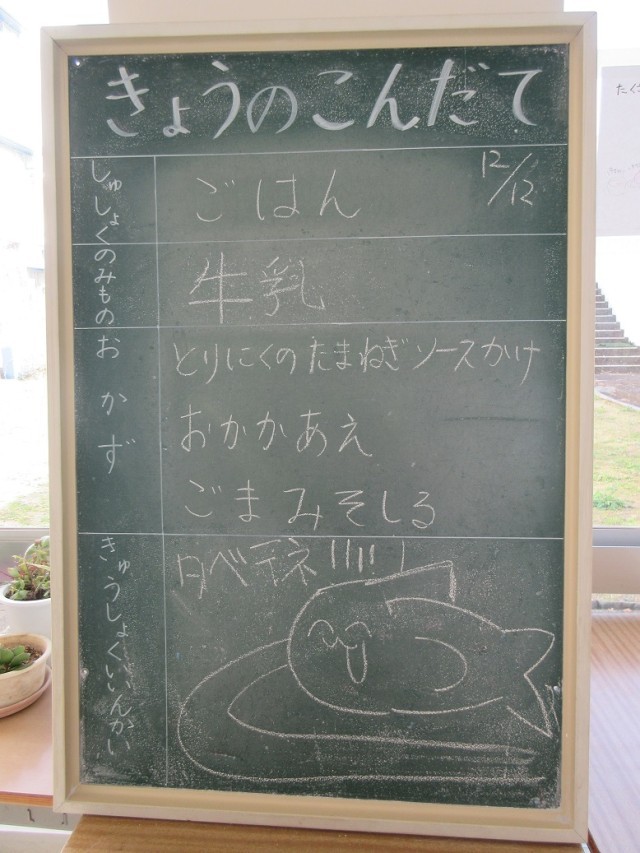 きょうのこんだて
12/12
しゅしょく
ごはん
のみもの
牛乳
おかず
とりにくのたまねぎソースかけ
おかかあえ
ごまみそしる
きゅうしょくいいんかい
タベテネ!!!!!
たく